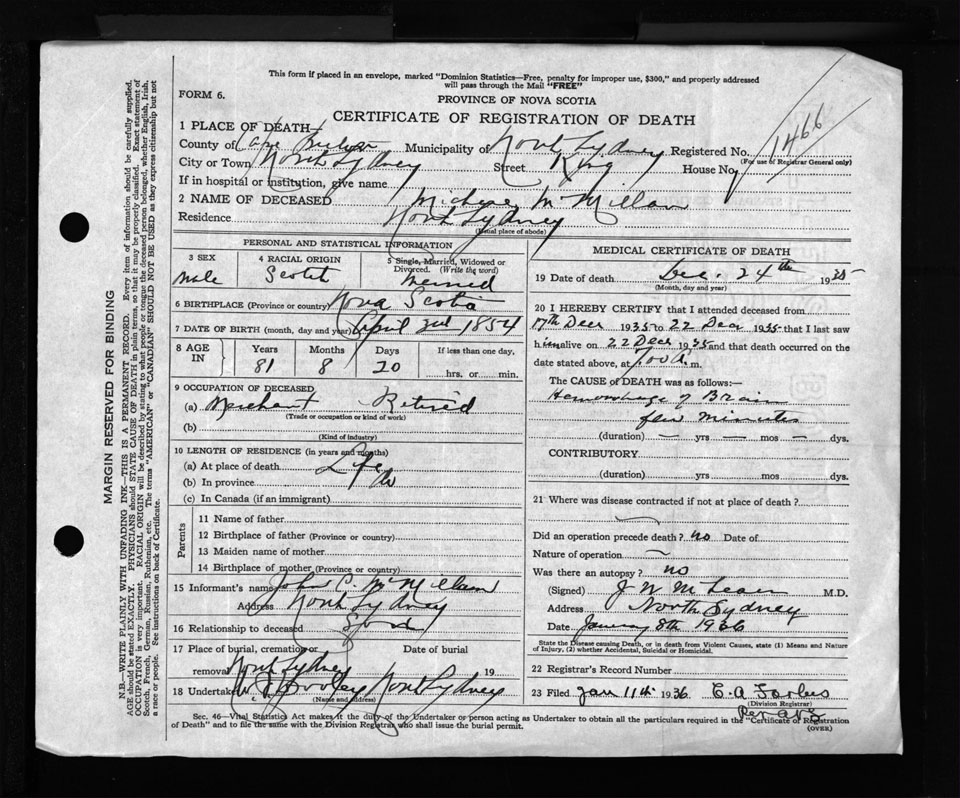 This form if placed in an envelope, marked "Dominion Statistics—Free, penalty for improper use, $300," and properly addressed
will pass through the Mail "FREE"
FORM 6.
PROVINCE OF NOVA SCOTIA
CERTIFICATE OF REGISTRATION OF DEATH
1466
1 PLACE OF DEATH—
County of Cape Breton Municipality of North Sydney Registered No.
(For use of Registrar General only)
City or Town North Sydney Street King House No.
If in hospital or institution, give name
2 NAME OF DECEASED Michael McMillan
Residence North Sydney
(Usual place of abode)
PERSONAL AND STATISTICAL INFORMATION
3 SEX 4 RACIAL ORIGIN 5 Single, Married, Widowed or
Divorced. (Write the word)
Male Scotch Married
6 BIRTHPLACE (Province or country) Nova Scotia
7 DATE OF BIRTH (month, day and year) April 1854
8 AGE IN Years Months Days If less than one day,
81 8 20 hrs. or min.
9 OCCUPATION OF DECEASED
(a) Merchant Retired
(Trade or occupation or kind of work)
(b)
(Kind of industry)
10 LENGTH OF RESIDENCE (in years and months)
(a) At place of death Life
(b) In province do
(c) In Canada (if an immigrant)
Parents
11 Name of father
12 Birthplace of father (Province or country)
13 Maiden name of mother
14 Birthplace of mother (Province or country)
15 Informant's name John C. McMillan
Address North Sydney
16 Relationship to deceased Son
17 Place of burial, cremation or Date of burial
removal North Sydney 19
18 Undertaker North Sydney
(Name and address)
MEDICAL CERTIFICATE OF DEATH
19 Date of death Dec. 24th 1935
(Month, day and year)
20 I HEREBY CERTIFY that I attended deceased from
17th Decr 1935 to 22 Decr 1935 that I last saw
him alive on 22 Decr 1935 and that death occurred on the
date stated above, at m.
The CAUSE of DEATH was as follows:—
Hemorrhage of Brain
few minutes
(duration) — yrs — mos — dys.
CONTRIBUTORY
(duration) yrs mos dys.
21 Where was disease contracted if not at place of death?
Did an operation precede death? no Date of
Nature of operation —
Was there an autopsy? no
(Signed) J W McLean M.D.
Address North Sydney
Date January 8th 1936
State the Disease causing Death, or in death from Violent Causes, state (1) Means and Nature
of Injury, (2) whether Accidental, Suicidal or Homicidal.
22 Registrar's Record Number
23 Filed Jan 11th 1936 C. A Forbes
(Division Registrar)
Sec. 46—Vital Statistics Act makes it the duty of the Undertaker or person acting as Undertaker to obtain all the particulars required in the "Certificate of Registration
of Death" and to file the same with the Division Registrar who shall issue the burial permit.
(OVER)
MARGIN RESERVED FOR BINDING
N.B.—WRITE PLAINLY WITH UNFADING INK—THIS IS A PERMANENT RECORD. Every item of information should be carefully supplied.
AGE should be stated EXACTLY. PHYSICIANS should STATE CAUSE OF DEATH in plain terms, so that it may be properly classified. Exact statement of
OCCUPATION is very important. RACIAL ORIGIN will be described by stating to what people or tongue the deceased person belonged, whether English, Irish,
Scotch, French, German, Russian, Ruthenian, etc. The terms "AMERICAN" or "CANADIAN" SHOULD NOT BE USED as they express citizenship but not
a race or people. See instructions on back of Certificate.